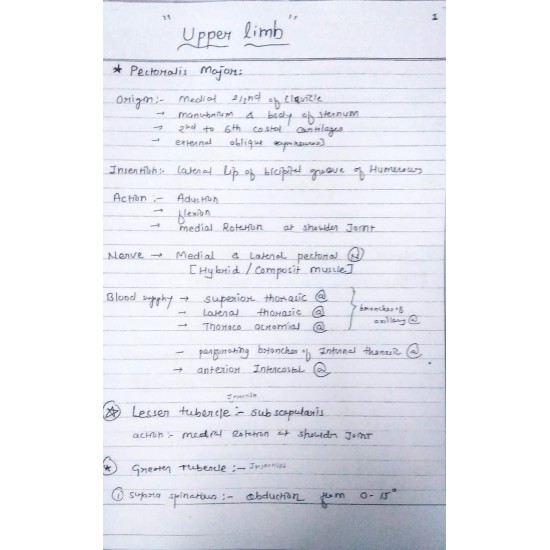 1
" Upper limb "
* Pectoralis Major:
Origin:- Medial 2/3nd of Clavicle
→ manubrium & body of sternum
→ 2nd to 6th costal cartilages
→ external oblique
Insertion:- Lateral lip of bicipital groove of Humerous
Action:- Aduction
→ flexion
→ medial Rotation at shoulder Joint
Nerve → Medial & Lateral pectoral (N)
[Hybrid / Composit muscle]
Blood supply → superior thorasic (a)
- Lateral thorasic (a)
→ Thoraco acromial (a)
branches of axillary (a)
- perforating branches of Internal thorasic (a)
→ anterior Intercostal (a)
* Lesser tubercle:- subscapularis
action:- medial Rotation at shoulder Joint
* Greater tubercle:-
① supra spinatus:- abduction from 0-15°